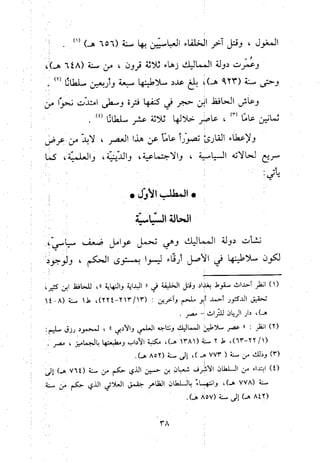 المغول ، وقتل آخر الخلفاء العباسيين بها سنة (٦٥٦ هـ) (١) .
وعمرت دولة المماليك زهاء ثلاثة قرون ، من سنة (٦٤٨ هـ)
وحتى سنة (٩٢٣ هـ) ، بلغ عدد سلاطينها سبعة وأربعين سلطانًا (٢) .
وعاش الحافظ ابن حجر في كنفها فترة وجيزة امتدت نحوًا من
ثمانين عامًا (٣) ، عاصر خلالها ثلاثة عشر سلطانًا (٤) .
ولإعطاء القارئ تصورًا عامًا عن هذا العصر ، لابد من عرض
سريع لحالاته السياسية ، والاجتماعية، والدينية، والعلمية، كما
يأتي:
• المطلب الأول •
الحالة السياسية
نشأت دولة المماليك وهي تحمل عوامل ضعف سياسي،
لكون سلاطينها في الأصل أرقاء ليسوا بمستوى الحكم ، ولوجود
(١) انظر أحداث سقوط بغداد وقتل الخليفة في « البداية والنهاية » للحافظ ابن كثير ،
تحقيق الدكتور أحمد أبو ملحم وآخرين : (١٣/ ٢١٣-٢٢٤) ، ط١ سنة ١٤٠٨
هـ، دار الريان للتراث - مصر .
(٢) انظر : « عصر سلاطين المماليك ونتاجه العلمي والأدبي » ، لمحمود رزق سليم:
(١/ ٢٢-٦٣) ، ط ٢ سنة (١٣٨١ هـ) ، مكتبة الآداب ومطبعتها بالجماميز ، مصر .
(٣) وذلك من سنة ( ٧٧٣ هـ) إلى سنة (٨٥٢ هـ) .
(٤) ابتداء من السلطان الأشرف شعبان بن حسين الذي حكم من سنة (٧٦٤ هـ) إلى
سنة (٧٧٨ هـ)، وانتهاءً بالسلطان الظاهر جقمق العلائي الذي حكم من سنة
(٨٤٢ هـ) إلى سنة (٨٥٧ هـ) .
٣٨